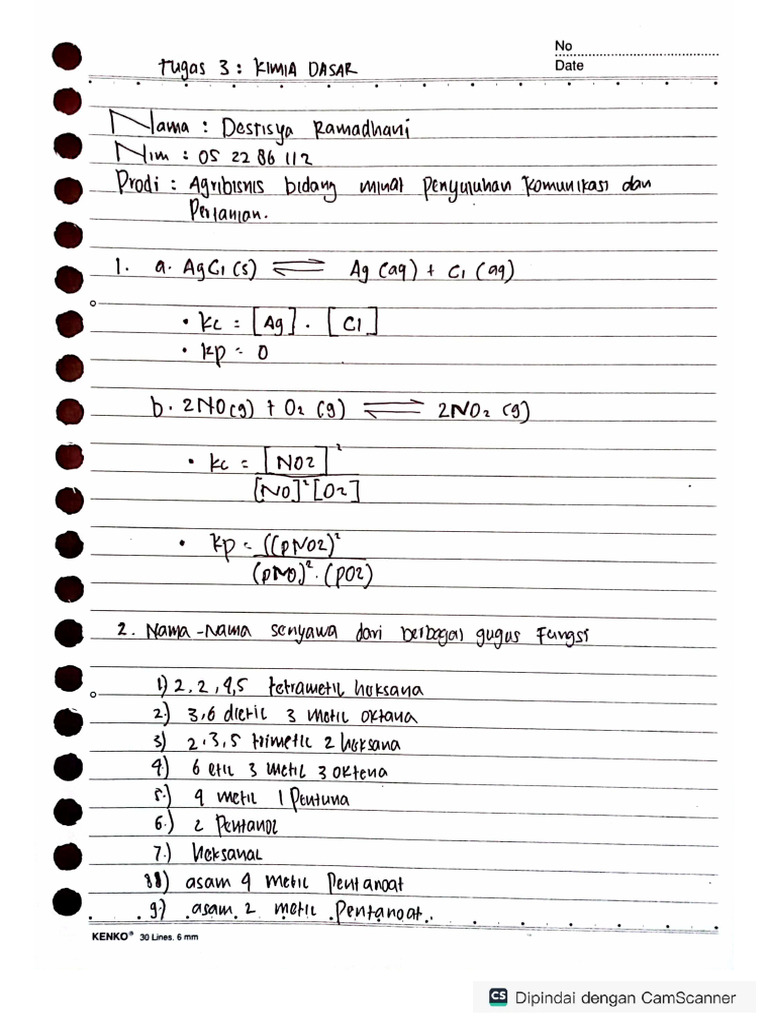 No
Date
Tugas 3 : KIMIA DASAR
Nama : Destisya Ramadhani
Nim : 05 22 86 112
Prodi : Agribisnis bidang minat penyuluhan komunikasi dan
Pertanian.
1. a. AgCl (s) ⇌ Ag (aq) + Cl (aq)
• kc = [Ag] . [Cl]
• kp = 0
b. 2NO(g) + O2 (g) ⇌ 2NO2 (g)
• kc = [NO2]²
[NO]²[O2]
• kp = ((pNO2)²
(pNO)² . (pO2)
2. Nama-Nama senyawa dari berbagai gugus Fungsi
1) 2, 2, 4,5 tetrametil heksana
2.) 3,6 dietil 3 metil oktana
3) 2.3,5 trimetil 2 heksana
4.) 6 etil 3 metil 3 oktena
5.) 4 metil 1 Pentuna
6.) 2 Pentanol
7.) heksanal
88) asam 4 metil Pentanoat
9.) asam 2 metil Pentanoat.
KENKO® 30 Lines. 6 mm
CS Dipindai dengan CamScanner